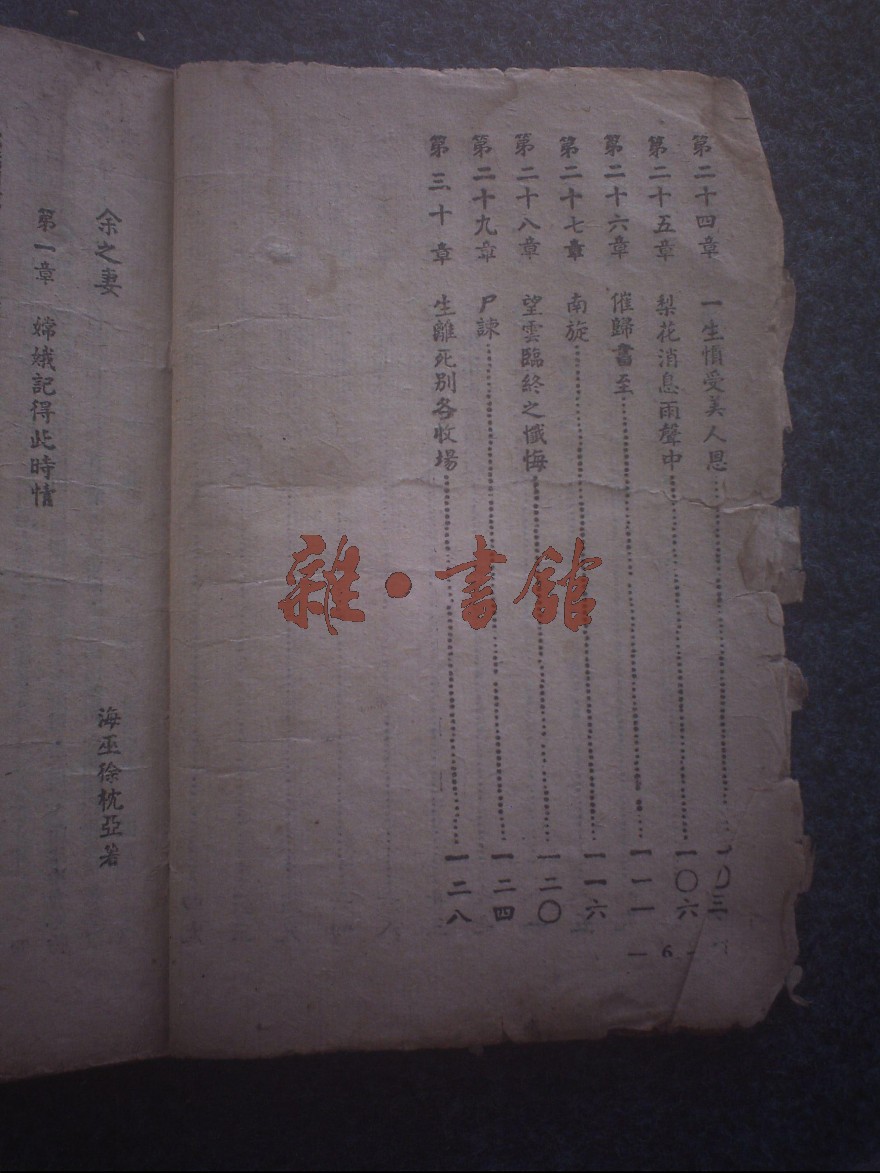 第二十四章 一生慣受美人恩 一〇三
第二十五章 梨花消息雨聲中 一〇六
第二十六章 催歸書至 一一一
第二十七章 南旋 一一六
第二十八章 望雲臨終之懺悔 一二〇
第二十九章 尸諫 一二四
第三十章 生離死別各收場 一二八
— 6 -
余之妻
海巫徐枕亞著
第一章 嫦娥記得此時情
雜·書館